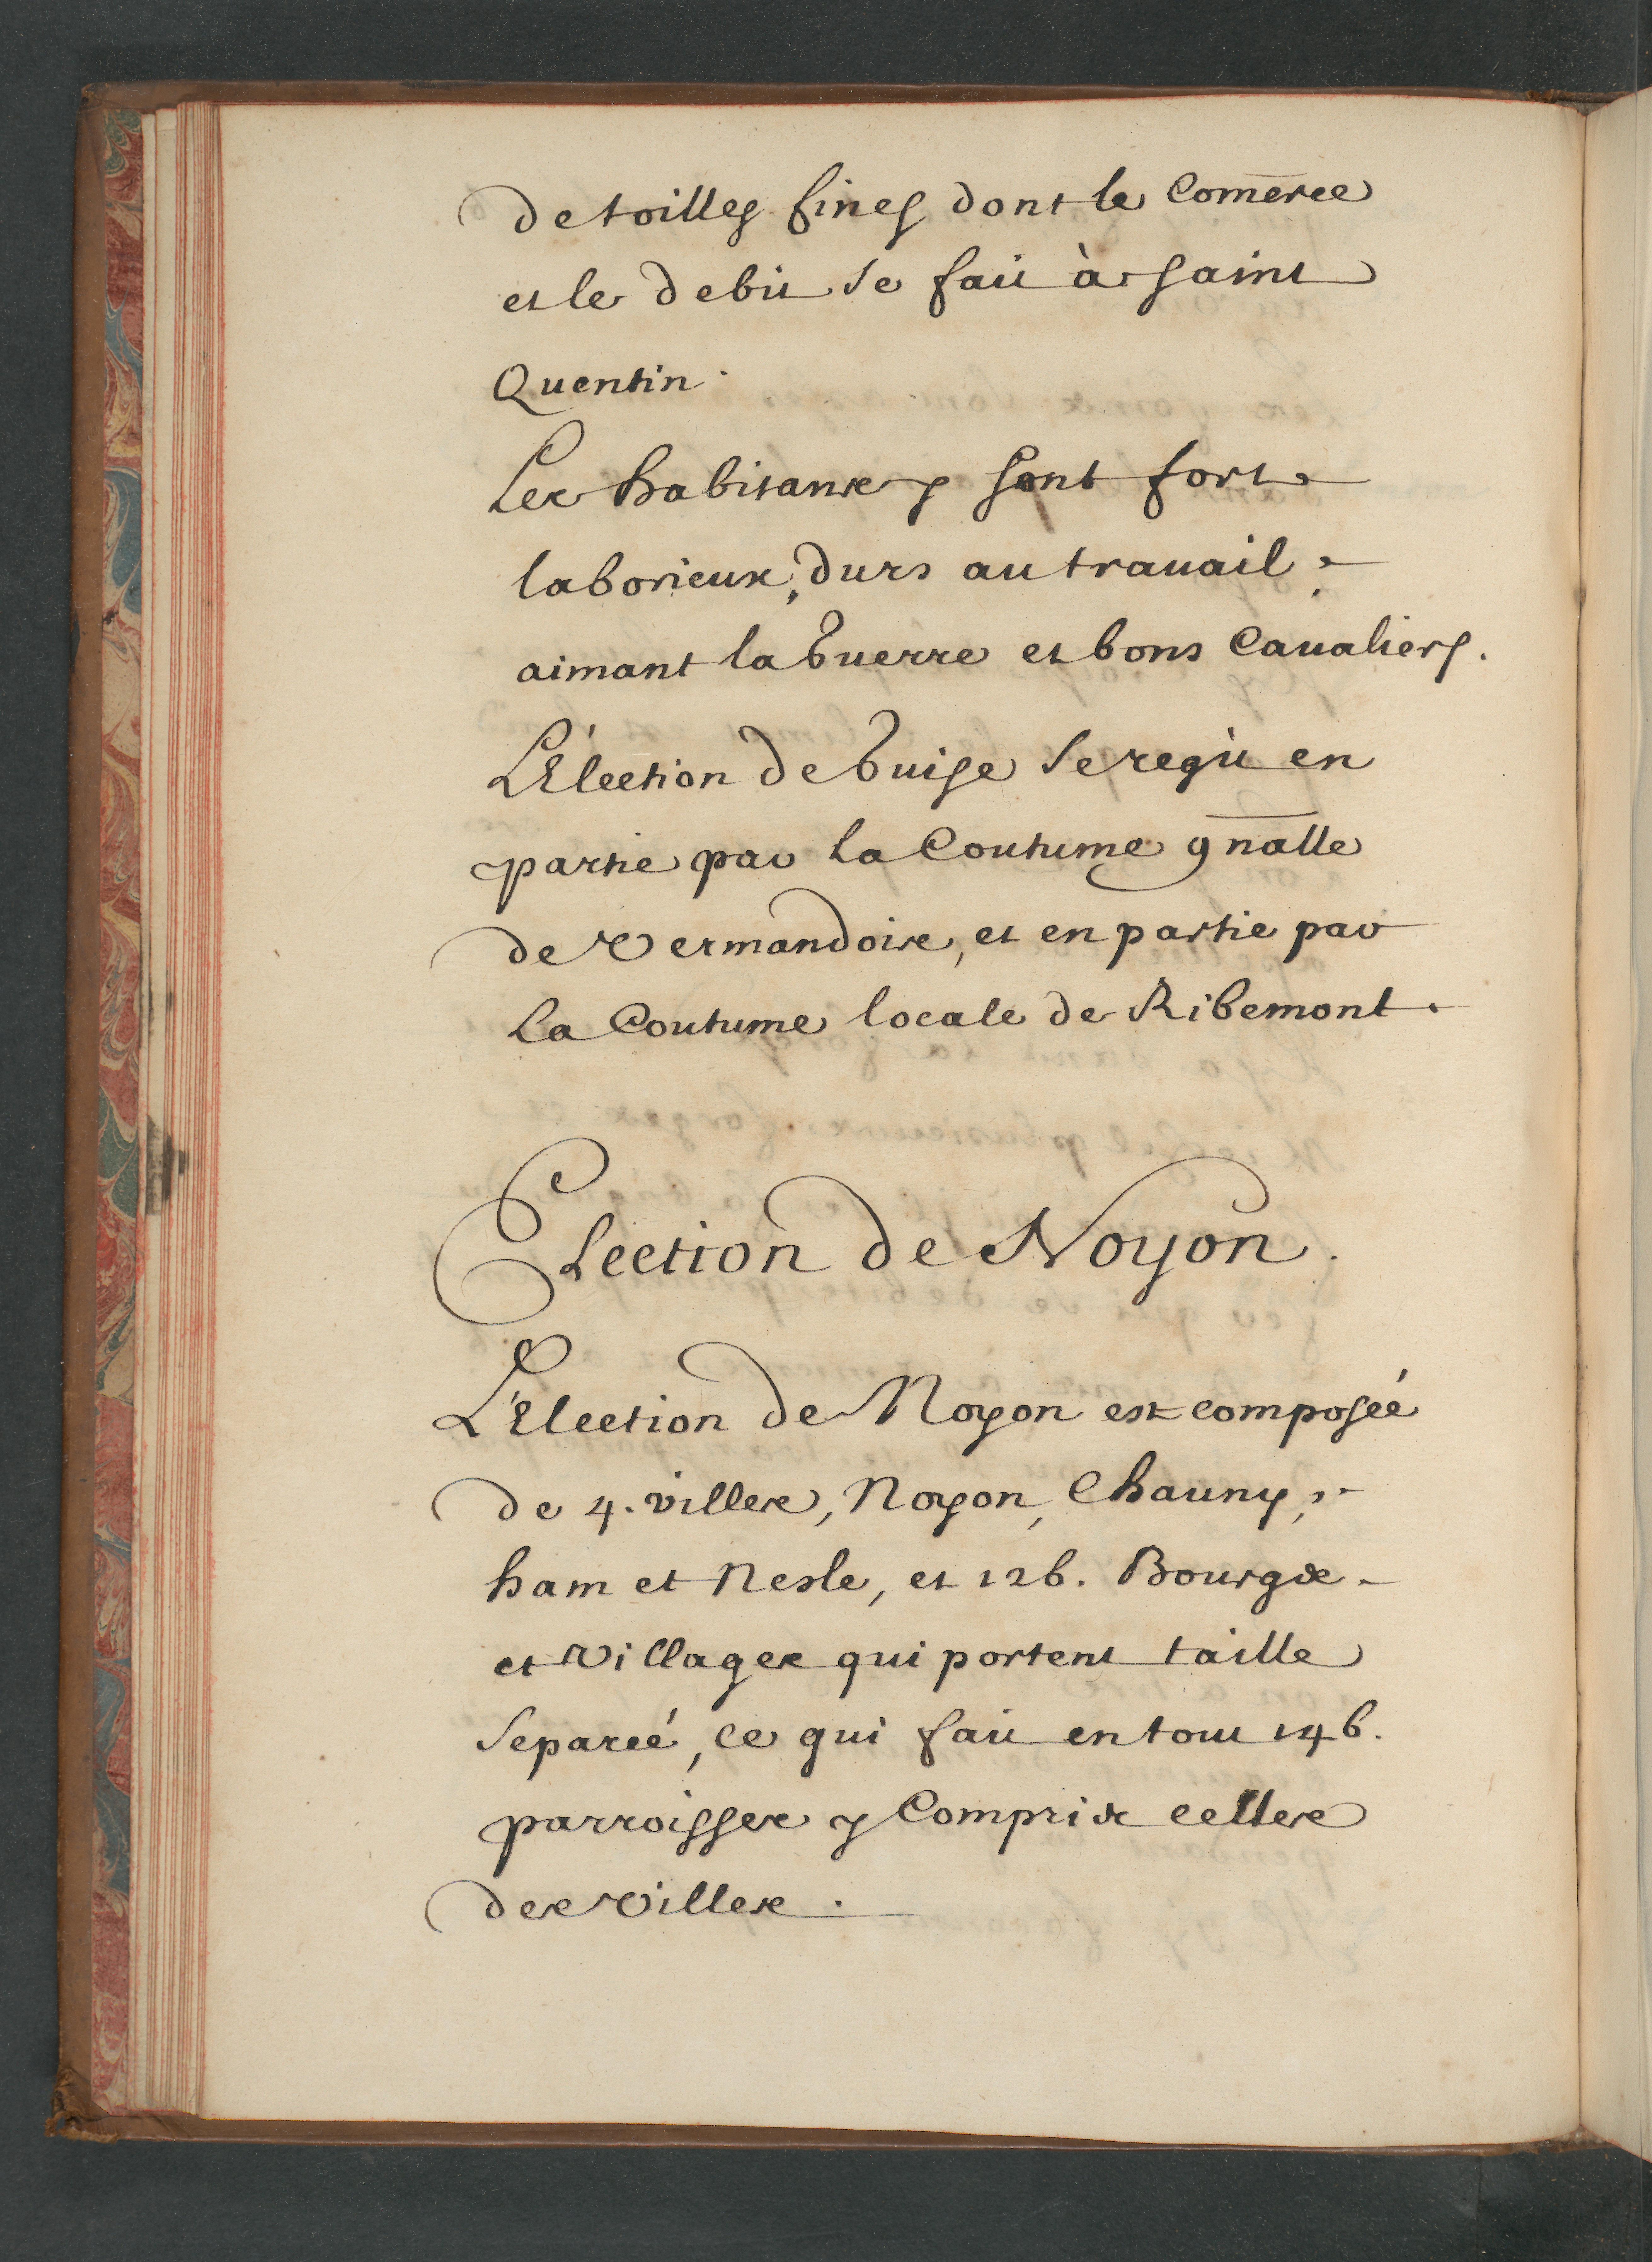 de toilles fines dont le Com̄erce
et le debit se fait à saint
Quentin.
Les habitans y sont fort
laborieux, durs au trauail,
aimant la Guerre et bons Caualiers.
L'Election de Guise se regit en
partie par la Coutume gn̄alle
de Vermandois, et en partie par
la Coutume locale de Ribemont.
Election de Noyon.
L'Election de Noyon est composeé
de 4. villes, Noyon, Chauny,
ham et Nesle, et 126. Bourgs
et Villages qui portent taille
Separeé, ce qui fait en tout 146.
parroisses y Compris celles
des Villes.